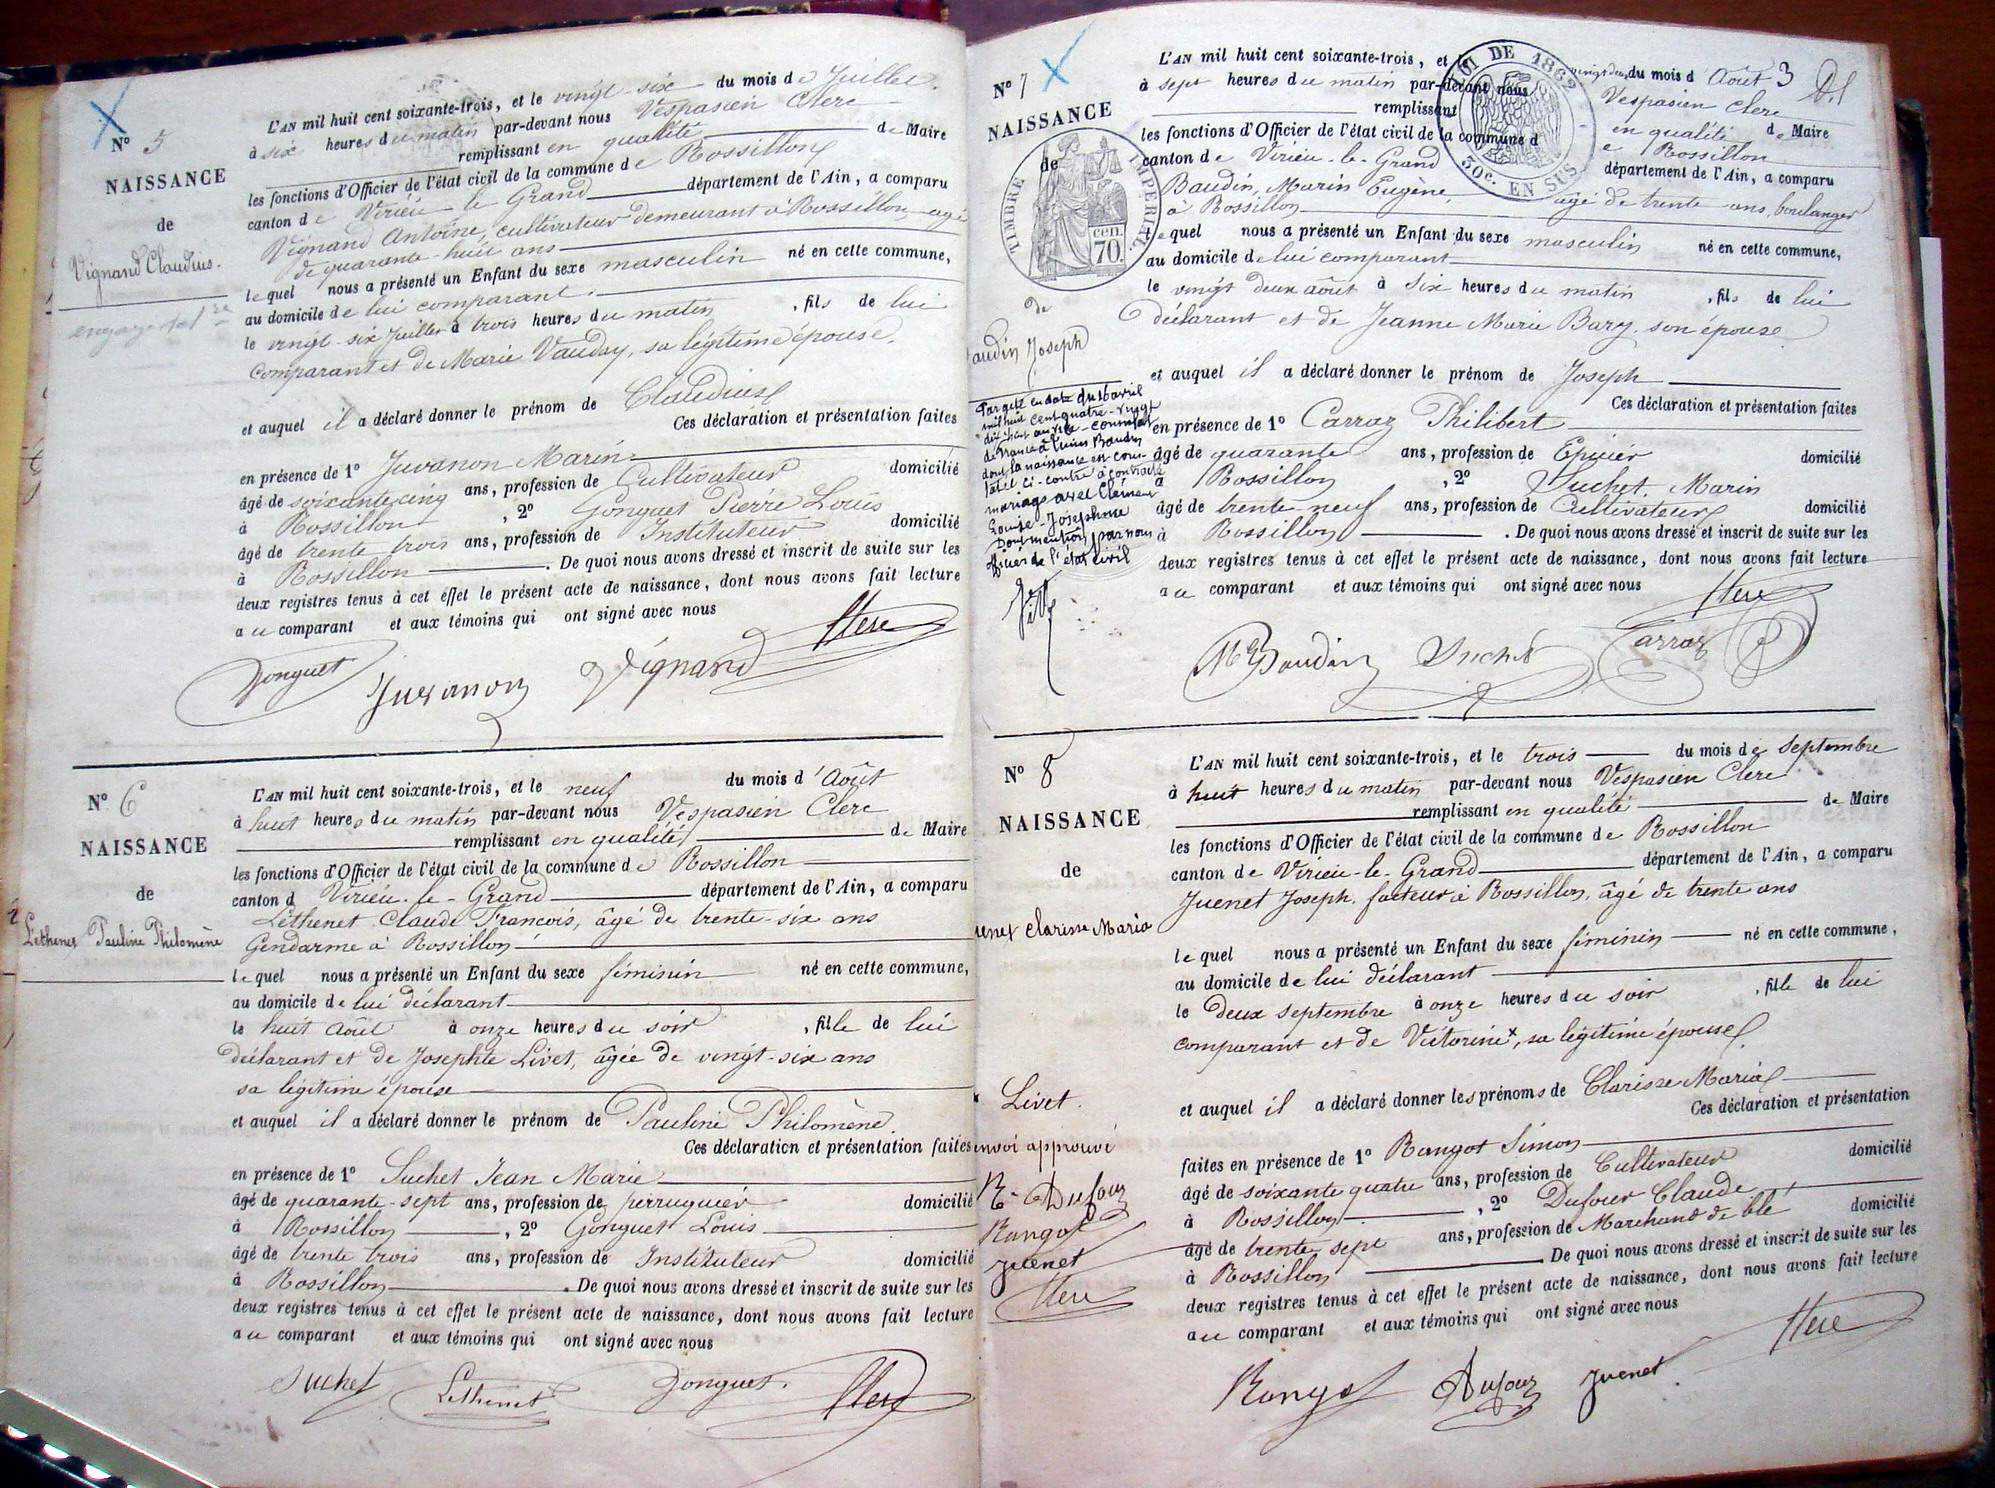 N° 5
NAISSANCE
de
Vignand Claudius.
L'AN mil huit cent soixante-trois, et le vingt-six du mois de Juillet.
à six heures du matin par-devant nous Vespasien Clerc
remplissant en qualité de Maire
les fonctions d'Officier de l'état civil de la commune de Rossillon
canton de Virieu-le-Grand département de l'Ain, a comparu
Vignand Antoine, cultivateur demeurant à Rossillon, agé
de quarante-huit ans
lequel nous a présenté un Enfant du sexe masculin né en cette commune,
au domicile de lui comparant
le vingt-six Juillet à trois heures du matin, fils de lui
comparant et de Marie Vauday, sa légitime épouse.
et auquel il a déclaré donner le prénom de Claudius
Ces déclaration et présentation faites
en présence de 1° Juvanon Marin
âgé de soixante cinq ans, profession de Cultivateur domicilié
à Rossillon, 2° Gonguet Pierre Louis
âgé de trente trois ans, profession de Instituteur domicilié
à Rossillon. De quoi nous avons dressé et inscrit de suite sur les
deux registres tenus à cet effet le présent acte de naissance, dont nous avons fait lecture
au comparant et aux témoins qui ont signé avec nous
Clerc
Gonguet Juvanon Vignand
N° 6
NAISSANCE
de
Lethenet Pauline Philomène
L'AN mil huit cent soixante-trois, et le neuf du mois d'Août
à huit heures du matin par-devant nous Vespasien Clerc
remplissant en qualité de Maire
les fonctions d'Officier de l'état civil de la commune de Rossillon
canton d Virieu-le-Grand département de l'Ain, a comparu
Lethenet Claude François, âgé de trente-six ans
Gendarme à Rossillon
lequel nous a présenté un Enfant du sexe féminin né en cette commune,
au domicile de lui déclarant
le huit Août à onze heures du soir, fille de lui
déclarant et de Josephte Livet, âgée de vingt-six ans
sa légitime épouse
et auquel il a déclaré donner le prénom de Pauline Philomène.
Ces déclaration et présentation faites
en présence de 1° Suchet Jean Marie
âgé de quarante-sept ans, profession de perruquier domicilié
à Rossillon, 2° Gonguet Louis
âgé de trente trois ans, profession de Instituteur domicilié
à Rossillon. De quoi nous avons dressé et inscrit de suite sur les
deux registres tenus à cet effet le présent acte de naissance, dont nous avons fait lecture
au comparant et aux témoins qui ont signé avec nous
Suchet Lethenet Gonguet Clerc
N° 7
NAISSANCE
de
TIMBRE IMPERIAL
cen. 70.
LOI DE 1862
50c. EN SUS
3
de
audin Joseph
L'AN mil huit cent soixante-trois, et vingt deux du mois d Août
à sept heures du matin par-devant nous Vespasien Clerc
remplissant en qualité de Maire
les fonctions d'Officier de l'état civil de la commune de Rossillon
canton de Virieu-le-Grand département de l'Ain, a comparu
Baudin, Marin Eugène, agé de trente ans, boulanger
à Rossillon
lequel nous a présenté un Enfant du sexe masculin né en cette commune,
au domicile de lui comparant
le vingt deux août à six heures du matin, fils de lui
déclarant et de Jeanne Marie Bary son épouse
et auquel il a déclaré donner le prénom de Joseph
Ces déclaration et présentation faites
en présence de 1° Carraz Philibert
âgé de quarante ans, profession de Epicier domicilié
à Rossillon, 2° Suchet Marin
âgé de trente neuf ans, profession de Cultivateur domicilié
à Rossillon. De quoi nous avons dressé et inscrit de suite sur les
deux registres tenus à cet effet le présent acte de naissance, dont nous avons fait lecture
au comparant et aux témoins qui ont signé avec nous
Clerc
Par acte en date du avril
mil huit cent quatre-vingt
dont la naissance est cons-
taté ci-contre a contracté
mariage avec Clémence
Louise Joséphine
Dont mention par nous
officier de l'état civil
M E Baudin Suchet Carraz
N° 8
NAISSANCE
de
uenet Clarisse Maria
L'AN mil huit cent soixante-trois, et le trois du mois de Septembre
à huit heures du matin par-devant nous Vespasien Clerc
remplissant en qualité de Maire
les fonctions d'Officier de l'état civil de la commune de Rossillon
canton de Virieu-le-Grand département de l'Ain, a comparu
Juenet Joseph, facteur à Rossillon, âgé de trente ans
lequel nous a présenté un Enfant du sexe féminin né en cette commune,
au domicile de lui déclarant
le Deux septembre à onze heures du soir, fille de lui
comparant et de Victorine x, sa légitime épouse.
x Livet.
envoi approuvé
R- Dufour
Rangot
Juenet
Clerc
et auquel il a déclaré donner les prénoms de Clarisse Maria
Ces déclaration et présentation
faites en présence de 1° Rangot Simon
âgé de soixante quatre ans, profession de Cultivateur domicilié
à Rossillon, 2° Dufour Claude
âgé de trente sept ans, profession de Marchand de blé domicilié
à Rossillon. De quoi nous avons dressé et inscrit de suite sur les
deux registres tenus à cet effet le présent acte de naissance, dont nous avons fait lecture
au comparant et aux témoins qui ont signé avec nous
Clerc
Rangot Dufour Juenet